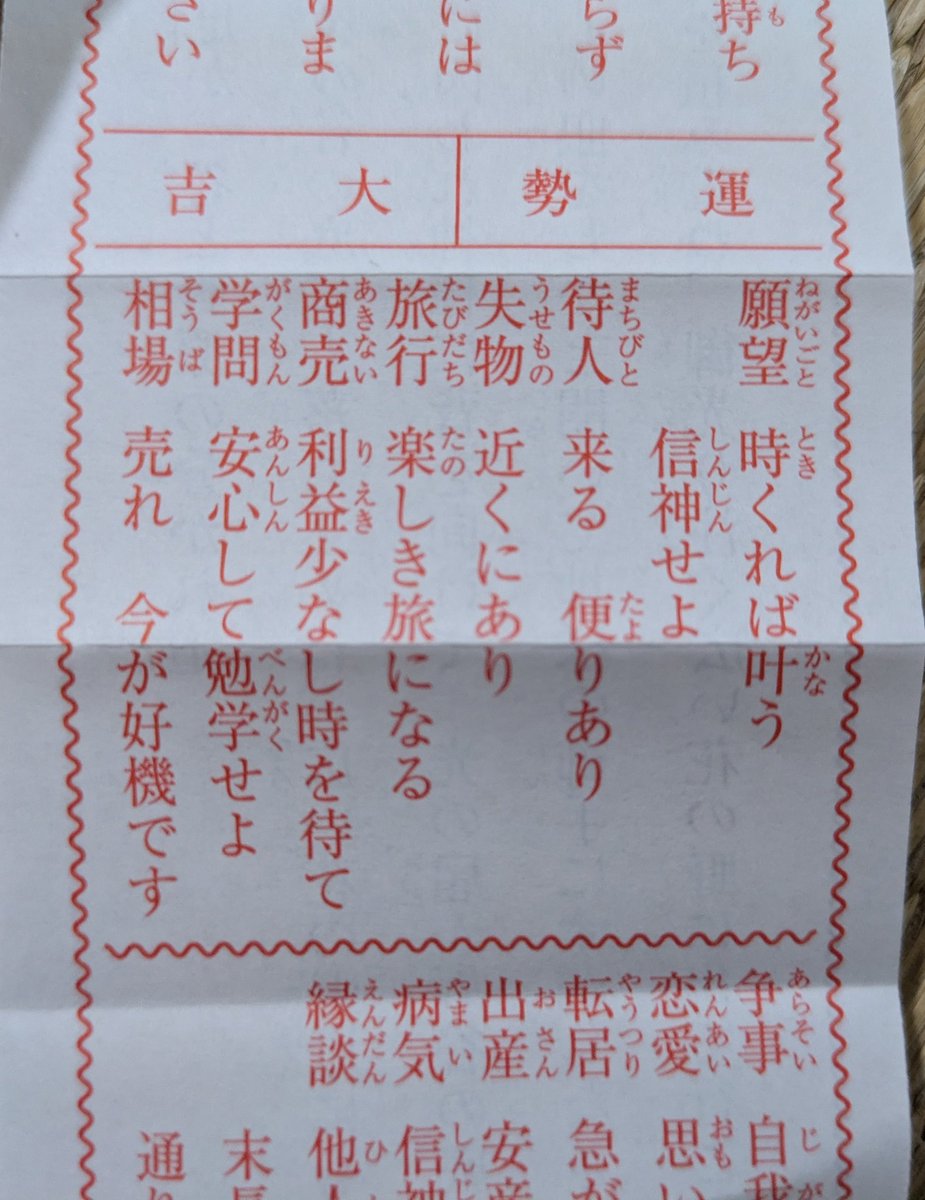 持ち
らず
には
りま
さい
運勢 大吉
願望 時くれば叶う
信神せよ
待人 来る 便りあり
失物 近くにあり
旅行 楽しき旅になる
商売 利益少なし時を待て
学問 安心して勉学せよ
相場 売れ 今が好機です
争事 自我
恋愛 思い
転居 急が
出産 安産
病気 信神
縁談 他人
末長
通り